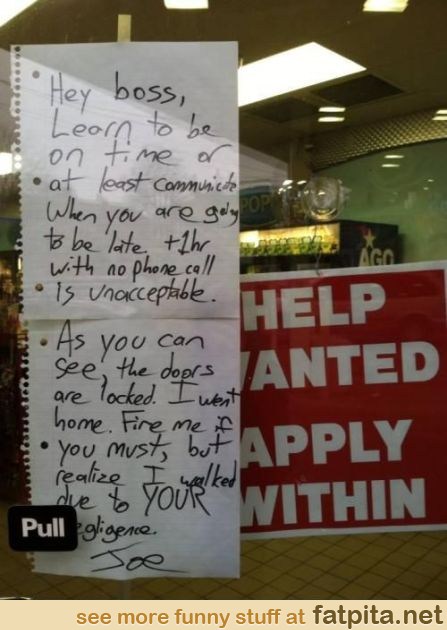 Hey boss,
Learn to be
on time or
at least communicate
when you are going
to be late. +1hr
with no phone call
is unacceptable.
As you can
see, the doors
are locked. I went
home. Fire me if
you must, but
realize I walked
due to YOUR
egligence.
Joe
Pull
POP
AGO
HELP
WANTED
APPLY
WITHIN
see more funny stuff at fatpita.net